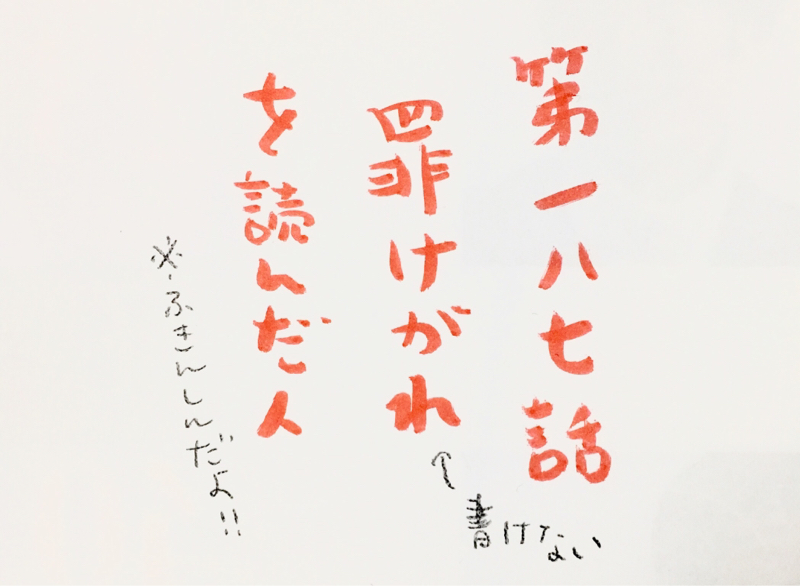 第一八七話
罪けがれ
↑書けない
を読んだ人
※ふきんしんだよ!!